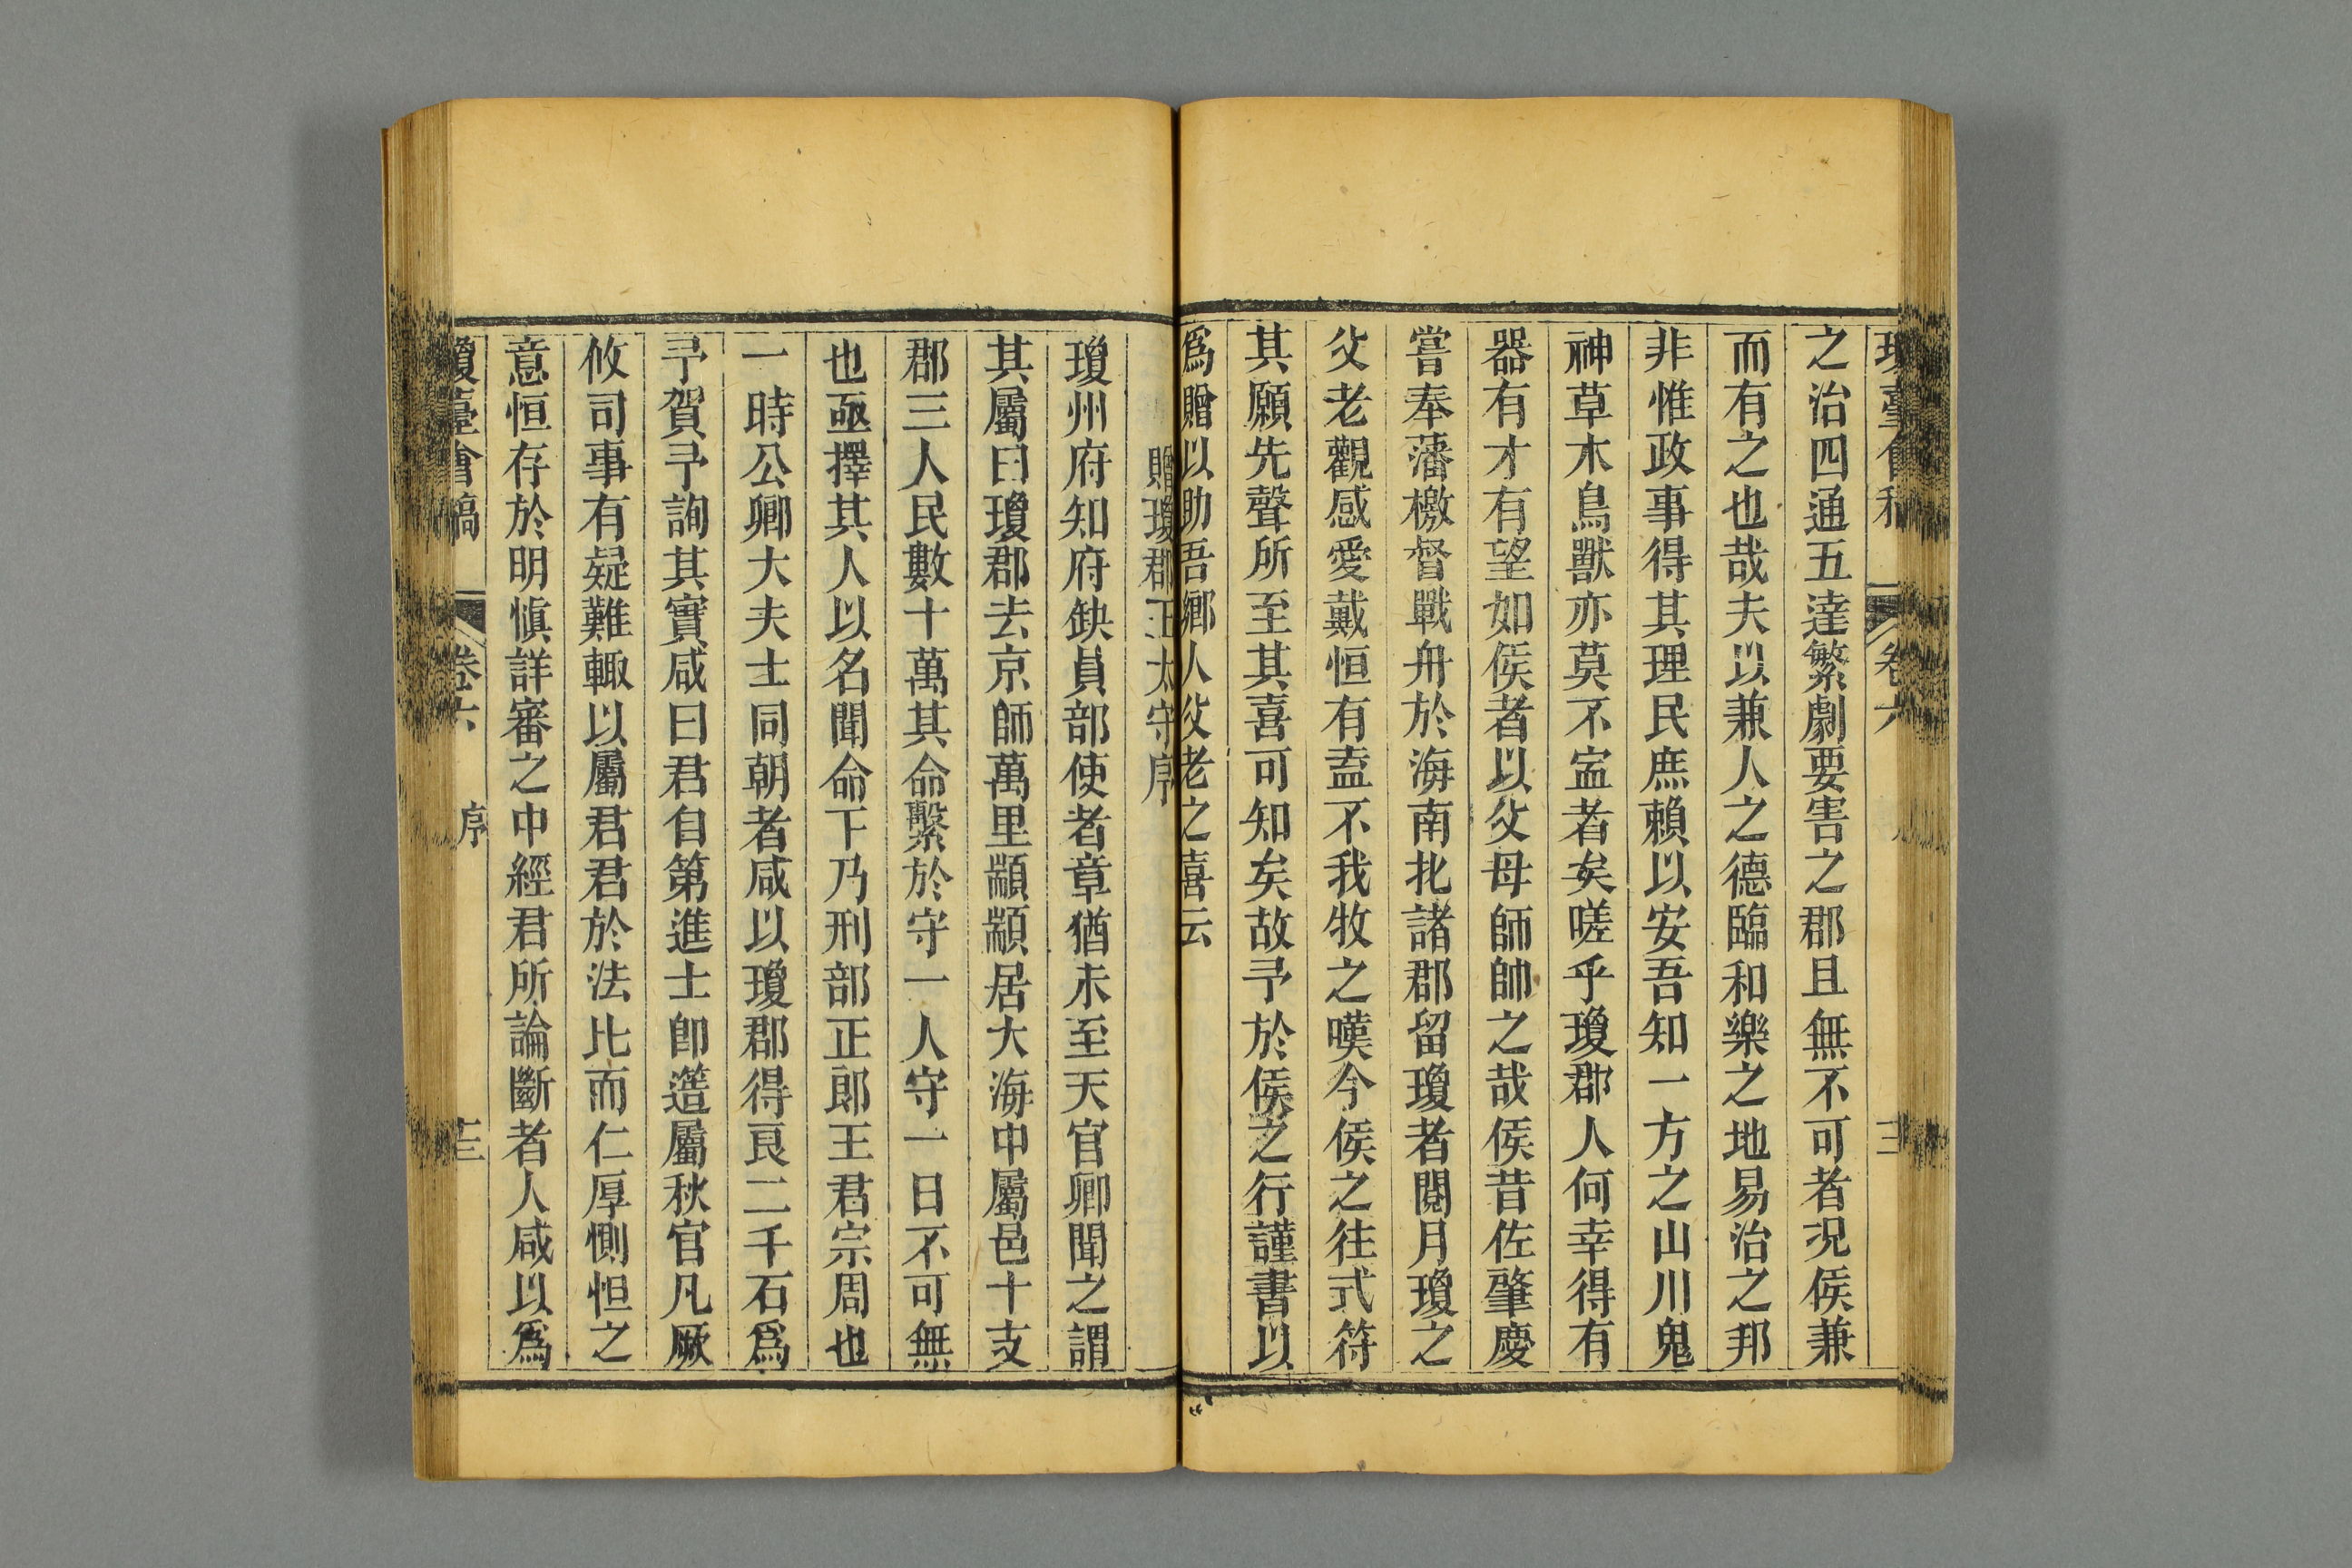 瓊臺會稿 卷六
之治四通五達繁劇要害之郡且無不可者況侯兼
而有之也哉夫以兼人之德臨和樂之地易治之邦
非惟政事得其理民庶賴以安吾知一方之山川鬼
神草木鳥獸亦莫不寍者矣嗟乎瓊郡人何幸得有
器有才有望如侯者以父母師帥之哉侯昔佐肇慶
嘗奉藩檄督戰舟於海南北諸郡留瓊者閱月瓊之
父老觀感愛戴恒有盍不我牧之嘆今侯之往式符
其願先聲所至其喜可知矣故予於侯之行謹書以
爲贈以助吾鄉人父老之喜云
贈瓊郡王太守序
瓊州府知府缺員部使者章猶未至天官卿聞之謂
其屬曰瓊郡去京師萬里顓顓居大海中屬邑十支
郡三人民數十萬其命繫於守一人守一日不可無
也亟擇其人以名聞命下乃刑部正郎王君宗周也
一時公卿大夫士同朝者咸以瓊郡得良二千石爲
予賀予詢其實咸曰君自第進士卽簉屬秋官凡厥
攸司事有疑難輙以屬君君於法比而仁厚惻怛之
意恒存於明愼詳審之中經君所論斷者人咸以爲
瓊臺會稿 卷六 序